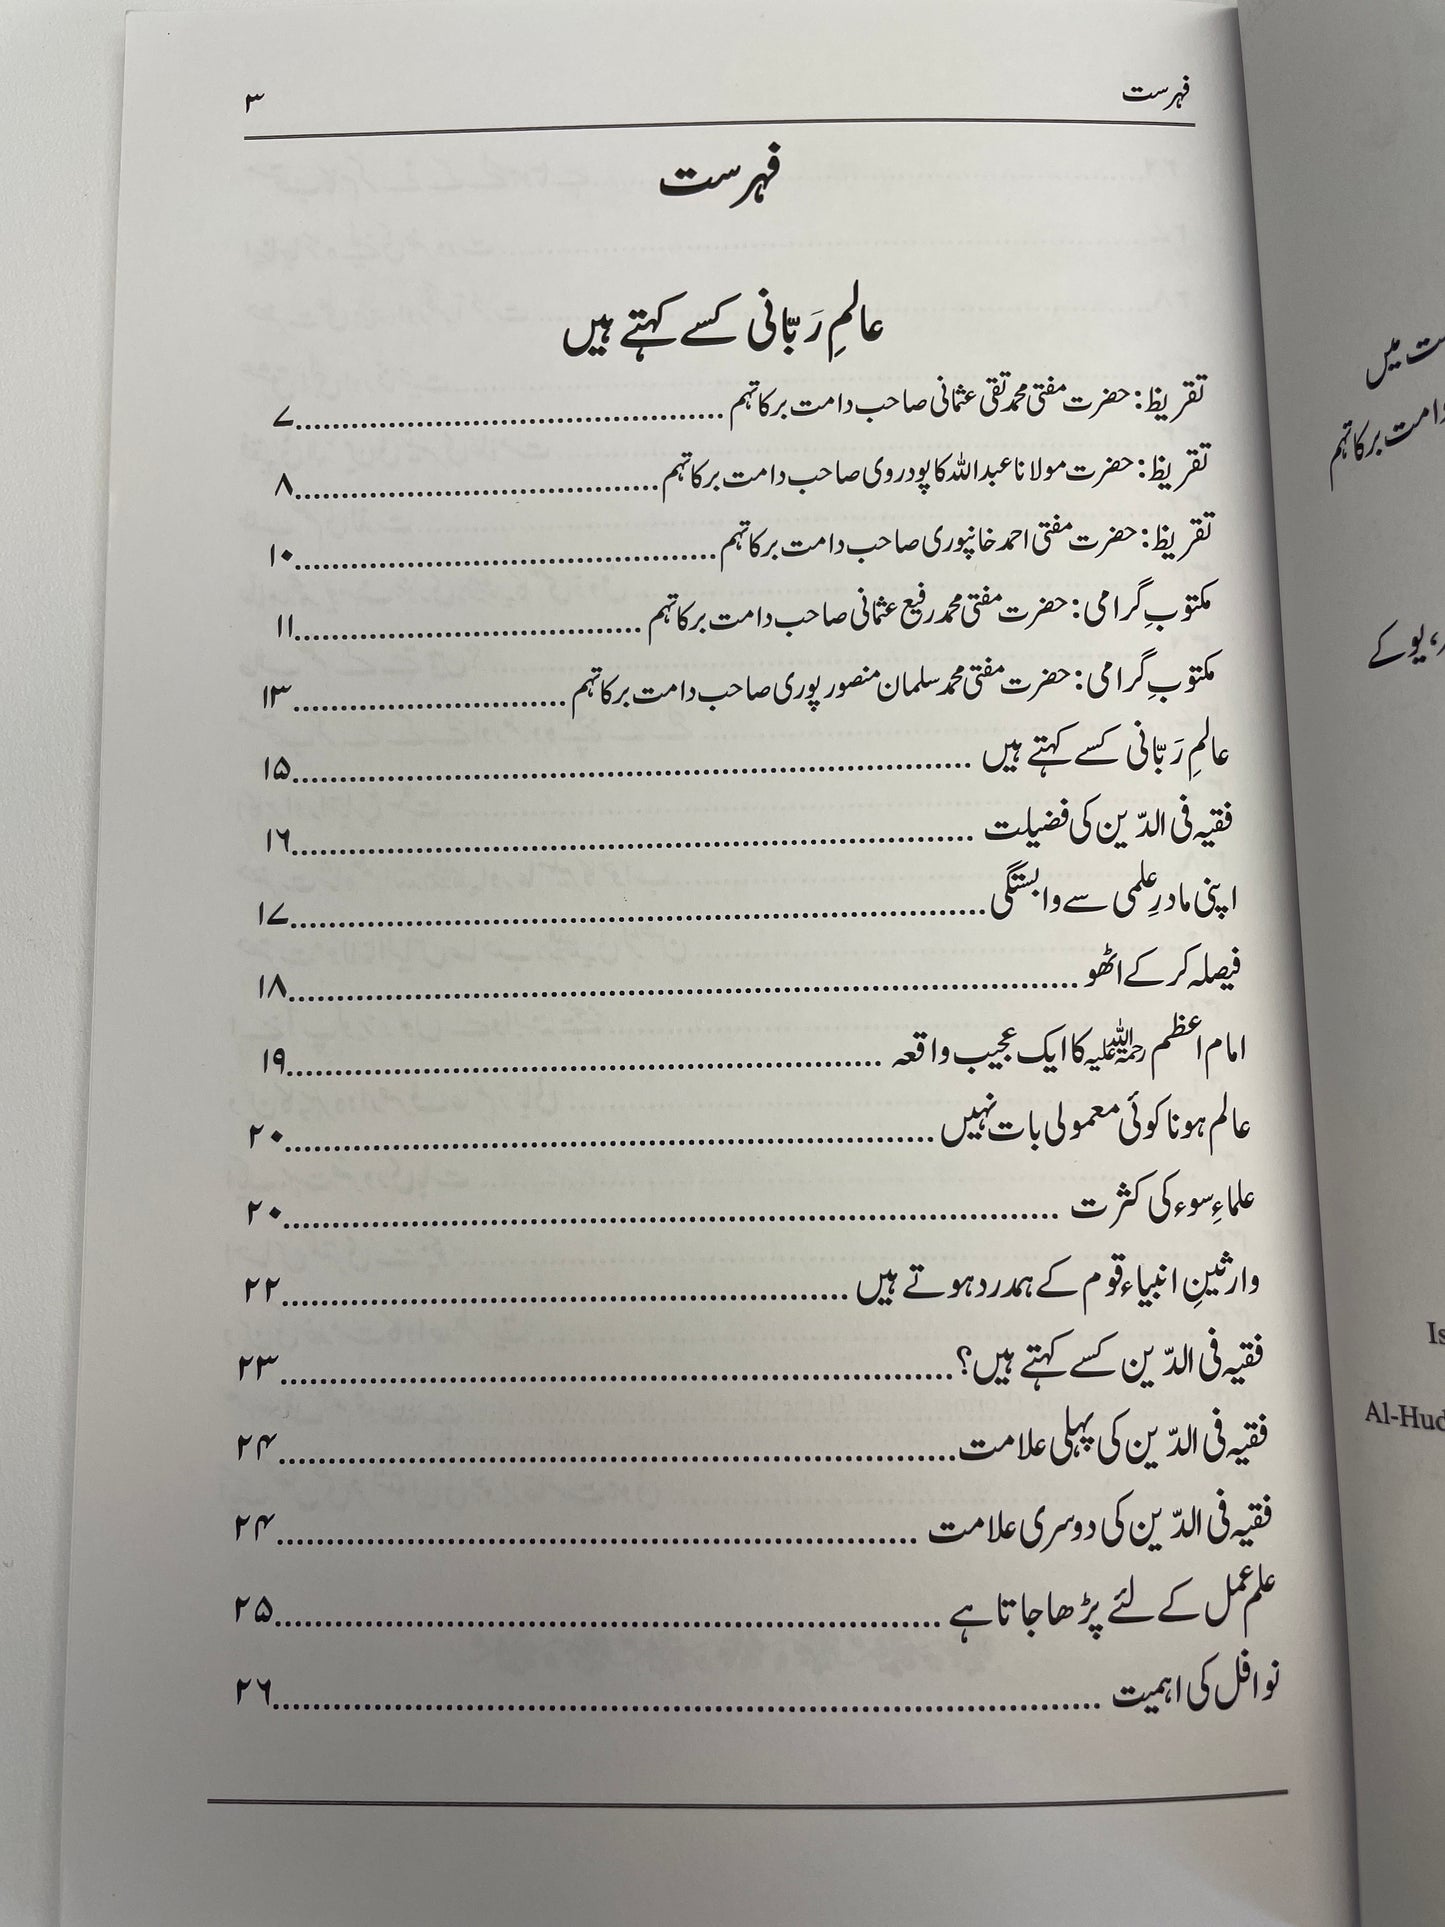 فہرست ۳
فہرست
عالمِ رَبّانی کسے کہتے ہیں
تقریظ: حضرت مفتی محمد تقی عثمانی صاحب دامت برکاتہم ........ ۷
تقریظ: حضرت مولانا عبد اللہ کاپودروی صاحب دامت برکاتہم ........ ۸
تقریظ: حضرت مفتی احمد خانپوری صاحب دامت برکاتہم ........ ۱۰
مکتوبِ گرامی: حضرت مفتی محمد رفیع عثمانی صاحب دامت برکاتہم ........ ۱۱
مکتوبِ گرامی: حضرت مفتی محمد سلمان منصور پوری صاحب دامت برکاتہم ........ ۱۳
عالمِ رَبّانی کسے کہتے ہیں ........ ۱۵
فقیہ فی الدّین کی فضیلت ........ ۱۶
اپنی مادرِ علمی سے وابستگی ........ ۱۷
فیصلہ کر کے اٹھو ........ ۱۸
امام اعظم رحمۃ اللہ علیہ کا ایک عجیب واقعہ ........ ۱۹
عالم ہونا کوئی معمولی بات نہیں ........ ۲۰
علماءِ سوء کی کثرت ........ ۲۰
وارثینِ انبیاء قوم کے ہمدرد ہوتے ہیں ........ ۲۲
فقیہ فی الدّین کسے کہتے ہیں؟ ........ ۲۳
فقیہ فی الدّین کی پہلی علامت ........ ۲۴
فقیہ فی الدّین کی دوسری علامت ........ ۲۴
علم عمل کے لئے پڑھا جاتا ہے ........ ۲۵
نوافل کی اہمیت ........ ۲۶
ت میں
دامت برکاتہم
، یو کے
Is
Al-Hud